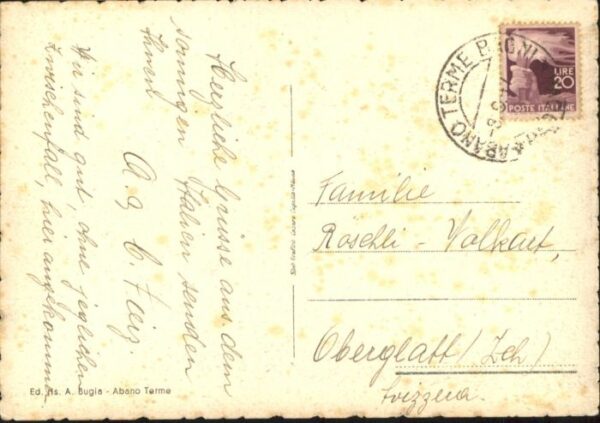 Herzliche Grüsse aus dem
sonnigen Italien senden
Ihnen
A. & C. Feierz.
Wir sind gut, ohne jeglichen
Zwischenfall, hier angekommen
Ed. A. Bugia - Abano Terme
ABANO TERME
LIRE
20
POSTE ITALIANE
Familie
Röschli - Volkart,
Oberglatt (Zch)
Svizzera.